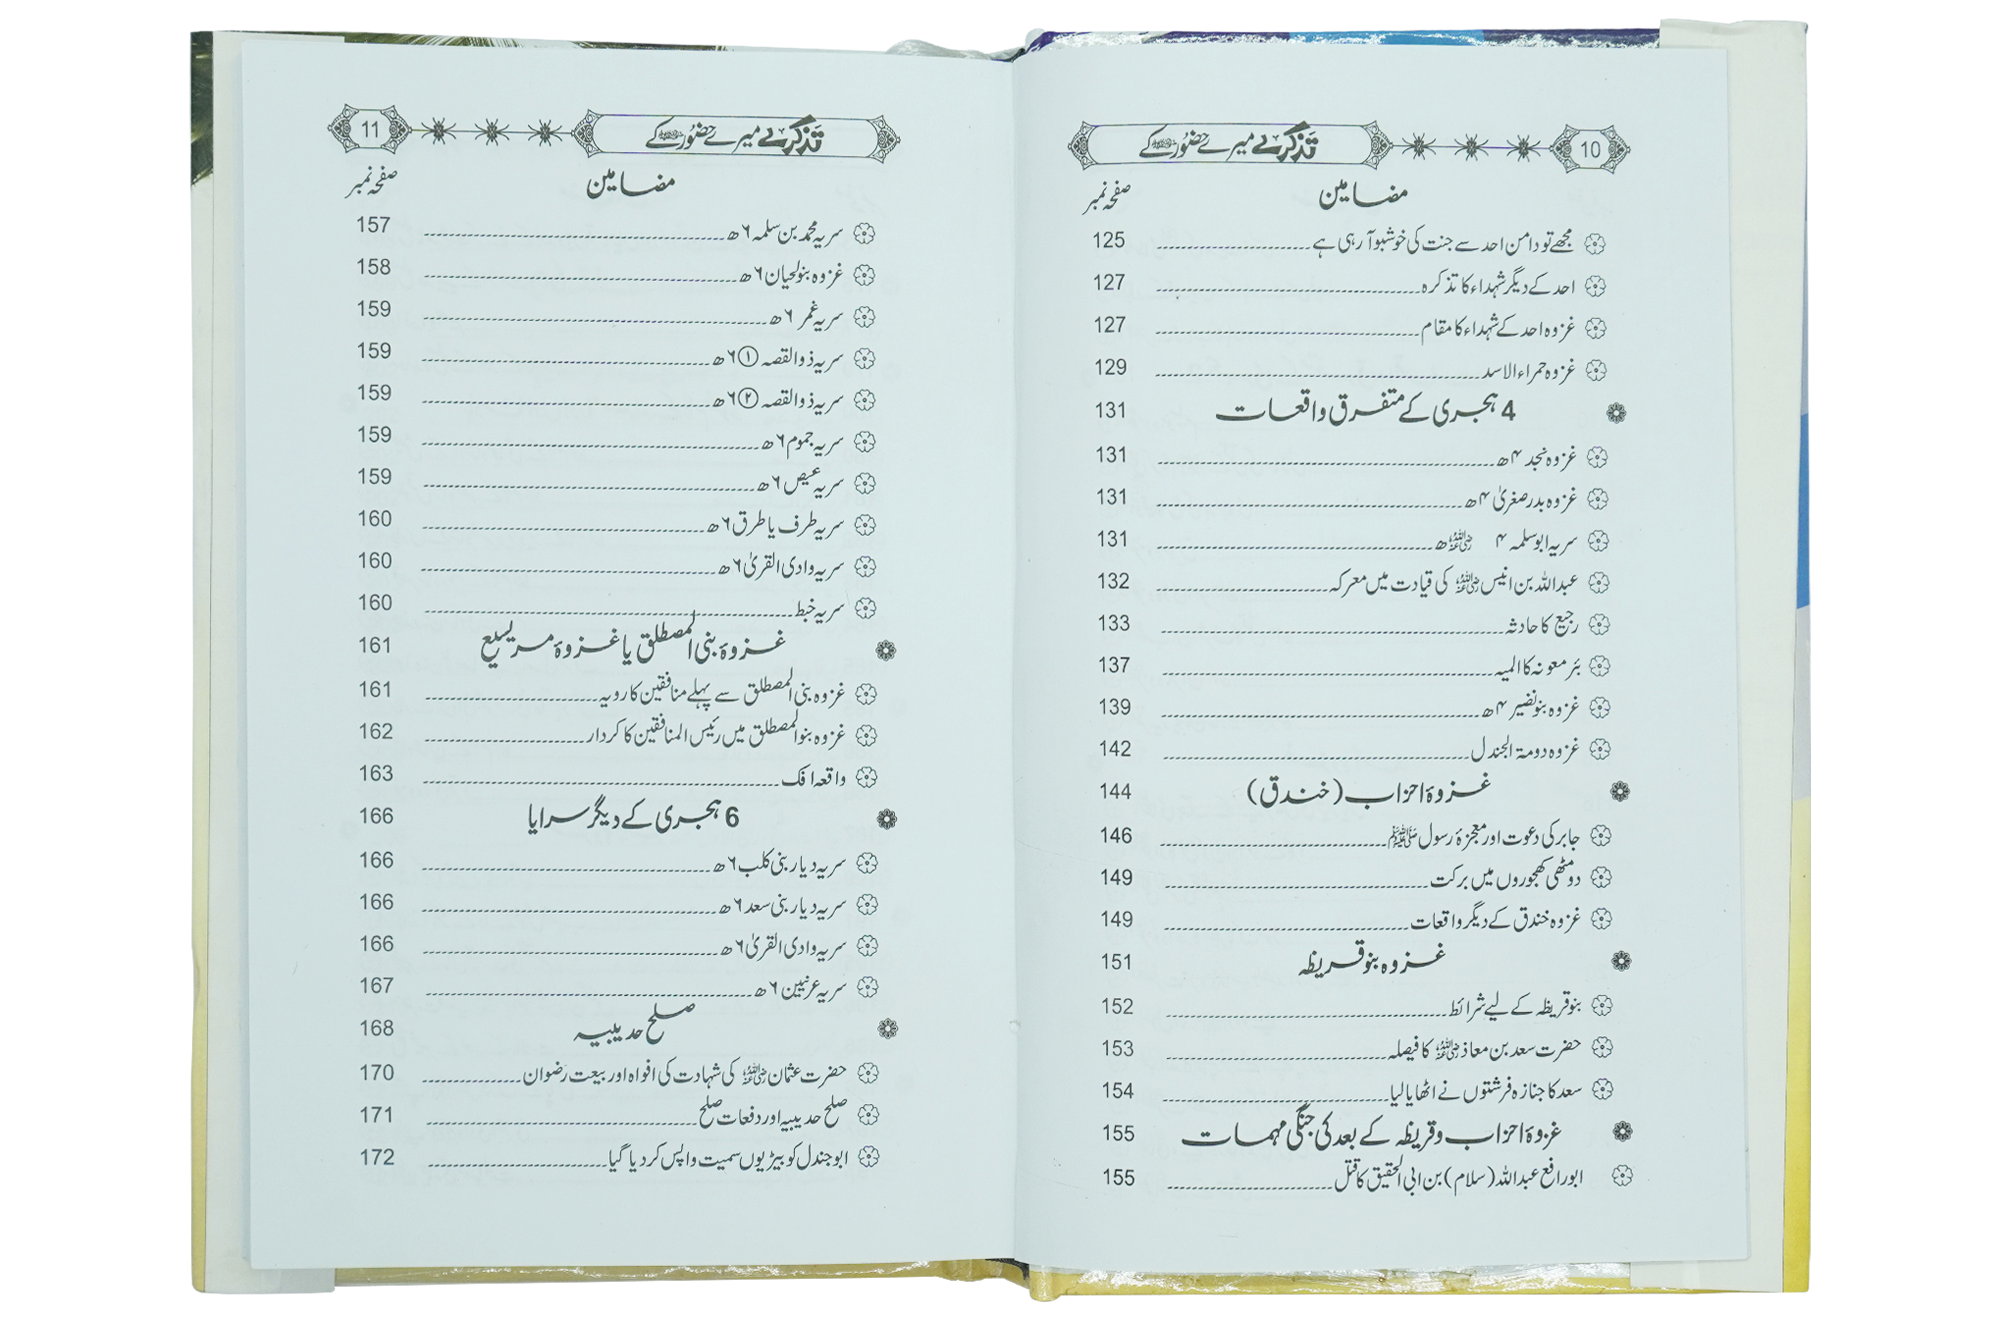 تذکرے میرے حضور ﷺ کے 10
مضامین صفحہ نمبر
مجھے تو دامن احد سے جنت کی خوشبو آرہی ہے 125
احد کے دیگر شہداء کا تذکرہ 127
غزوہ احد کے شہداء کا مقام 127
غزوہ حمراء الاسد 129
4 ہجری کے متفرق واقعات 131
غزوہ نجد ۴ھ 131
غزوہ بدر صغریٰ ۴ھ 131
سریہ ابوسلمہ ۴ رضی اللہ عنہ ھ 131
عبداللہ بن انیس رضی اللہ عنہ کی قیادت میں معرکہ 132
رجیع کا حادثہ 133
بئر معونہ کا المیہ 137
غزوہ بنو نضیر ۴ھ 139
غزوہ دومۃ الجندل 142
غزوۂ احزاب (خندق) 144
جابر کی دعوت اور معجزۂ رسول ﷺ 146
دو مٹھی کھجوروں میں برکت 149
غزوہ خندق کے دیگر واقعات 149
غزوہ بنو قریظہ 151
بنو قریظہ کے لیے شرائط 152
حضرت سعد بن معاذ رضی اللہ عنہ کا فیصلہ 153
سعد کا جنازہ فرشتوں نے اٹھایا لیا 154
غزوۂ احزاب و قریظہ کے بعد کی جنگی مہمات 155
ابورافع عبداللہ (سلام) بن ابی الحقیق کا قتل 155
تذکرے میرے حضور ﷺ کے 11
مضامین صفحہ نمبر
سریہ محمد بن سلمہ ۶ھ 157
غزوہ بنو لحیان ۶ھ 158
سریہ غمر ۶ھ 159
سریہ ذوالقصہ ① ۶ھ 159
سریہ ذوالقصہ ② ۶ھ 159
سریہ جموم ۶ھ 159
سریہ عیص ۶ھ 159
سریہ طرف یا طرق ۶ھ 160
سریہ وادی القریٰ ۶ھ 160
سریہ خبط 160
غزوۂ بنی المصطلق یا غزوۂ مریسیع 161
غزوہ بنی المصطلق سے پہلے منافقین کا رویہ 161
غزوہ بنو المصطلق میں رئیس المنافقین کا کردار 162
واقعہ افک 163
6 ہجری کے دیگر سرایا 166
سریہ دیار بنی کلب ۶ھ 166
سریہ دیار بنی سعد ۶ھ 166
سریہ وادی القریٰ ۶ھ 166
سریہ عرنیین ۶ھ 167
صلح حدیبیہ 168
حضرت عثمان رضی اللہ عنہ کی شہادت کی افواہ اور بیعت رضوان 170
صلح حدیبیہ اور دفعات صلح 171
ابوجندل کو بیڑیوں سمیت واپس کر دیا گیا 172